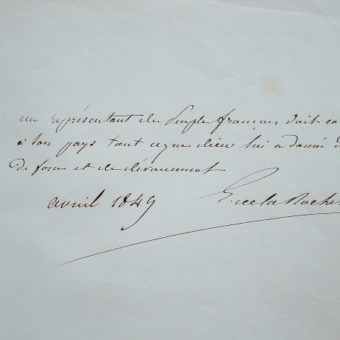 un représentant du Peuple français doit co
à son pays tout ce que dieu lui a donné d
de force et de dévouement
avril 1849 E. de la Roche